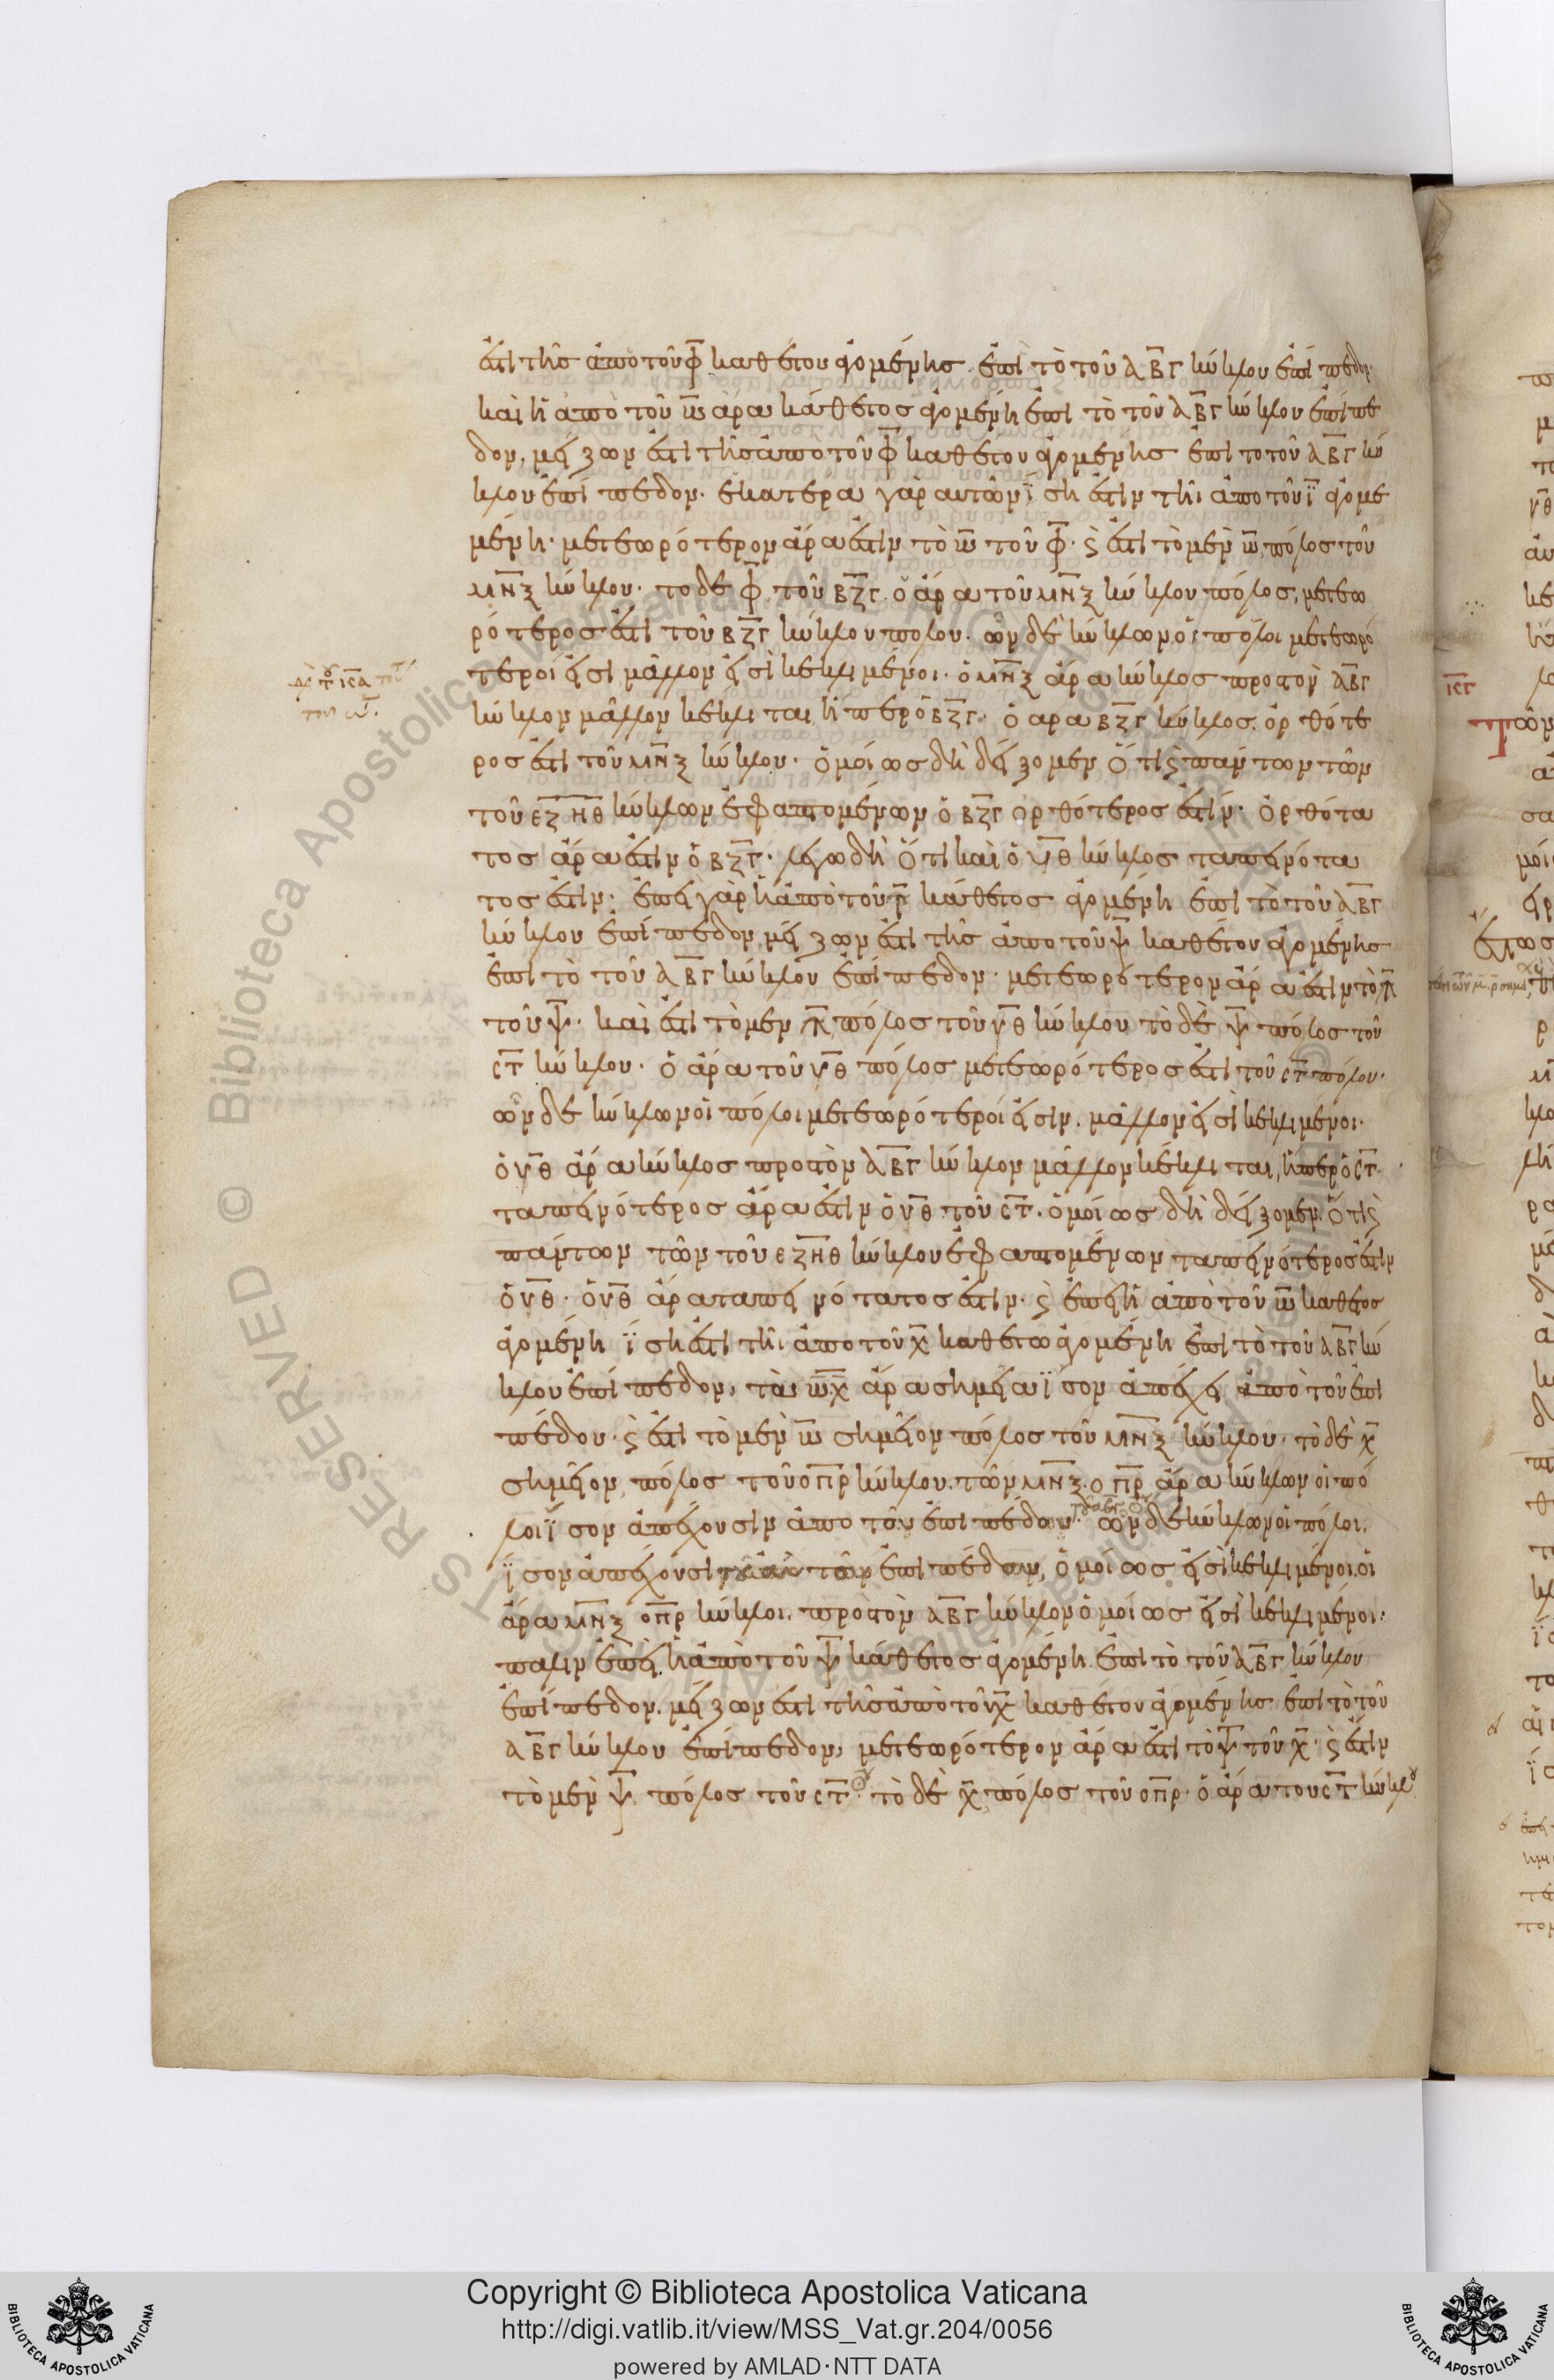 ἐστὶ τῆς ἀπὸ τοῦ φ καθέτου ἀγομένης ἐπὶ τὸ τοῦ ΑΒΓ κύκλου ἐπίπεδον·
καὶ ἡ ἀπὸ τοῦ ω ἄρα κάθετος ἀγομένη ἐπὶ τὸ τοῦ ΑΒΓ κύκλου ἐπίπε
δον, μείζων ἐστὶ τῆς ἀπὸ τοῦ φ καθέτου ἀγομένης ἐπὶ το τοῦ ΑΒΓ κύ
κλου ἐπίπεδον. ἑκατέρα γὰρ αυτῶν ἴση ἐστὶν τῆι ἀπο τοῦ
μένη· μετεωρότερον ἄρα ἐστὶν τὸ ω τοῦ φ· ϛ ἐστι τὸ μὲν ω πόλος τοῦ
ΜΝΞ κύκλου· το δὲ φ τοῦ ΒΖΓ. ὁ ἄρα τοῦ ΜΝΞ κύκλου πόλος, μετεω
ρότερος ἐστὶ τοῦ ΒΖΓ κύκλου πόλου. ὧν δὲ κύκλων οἱ πόλοι μετεωρό
τεροί εἰσι μᾶλλον εἰσὶ κεκλιμένοι. ὁ ΜΝΞ ἄρα κύκλος προς τὸν ΑΒΓ
κύκλον μᾶλλον κέκλιται ἤπερ ὁ ΒΖΓ. ὁ αρα ΒΖΓ κύκλος ὀρθότε
ρος ἐστὶ τοῦ ΜΝΞ κύκλου. ὁμοίως δὴ δείξομεν ὅτι ϛ πάντων τῶν
τοῦ ΕΖΗΘ κύκλων ἐφαπτομένων ὁ ΒΖΓ ὀρθότερος ἐστίν. ὀρθότα
τος ἄρα ἐστὶν ὁ ΒΖΓ. λέγω δὴ ὅτι καὶ ὁ ΥΘ κύκλος ταπεινότα
τος ἐστίν· ἐπεὶ γὰρ ἡ ἀπὸ τοῦ κάθετος ἀγομένη ἐπὶ τὸ τοῦ ΑΒΓ
κύκλου ἐπίπεδον, μείζων ἐστὶ τῆς ἀπο τοῦ ψ καθέτου ἀγομένης
ἐπὶ τὸ τοῦ ΑΒΓ κύκλου ἐπίπεδον· μετεωρότερον ἄρα ἐστὶν τὸ
τοῦ ψ. καὶ ἐστὶ τὸ μὲν πόλος τοῦ ΥΘ κύκλου τὸ δὲ ψ πόλος τοῦ
ϹΤ κύκλου. ὁ ἄρα τοῦ ΥΘ πόλος μετεωρότερος ἐστὶ τοῦ ϹΤ πόλου·
ὧν δὲ κύκλων οἱ πόλοι μετεωρότεροί εἰσιν, μᾶλλον εἰσὶ κεκλιμένοι.
ὁ ΥΘ ἄρα κύκλος προς τὸν ΑΒΓ κύκλον μᾶλλον κέκλιται, ἤπερ ὁ ϹΤ.
ταπεινότερος ἄρα ἐστὶν ὁ ΥΘ τοῦ ϹΤ. ὁμοίως δὴ δείξομεν ὅτι ϛ
πάντων τῶν τοῦ ΕΖΗΘ κύκλου ἐφαπτομένων ταπεινότερος ἐστὶν
ὁ ΥΘ. ὁ ΥΘ ἄρα ταπεινότατος ἐστίν. ϛ ἐπεὶ ἡ ἀπὸ τοῦ ω καθετος
ἀγομένη ἴση ἐστὶ τῆι ἀπο τοῦ χ καθετω ἀγομένη ἐπὶ τὸ τοῦ ΑΒΓ κύ
κλου ἐπίπεδον, τὰ ωχ ἄρα σημεῖα ἴσον ἀπέχει ἀπὸ τοῦ ἐπι
πέδου. ϛ ἐστι τὸ μὲν ω σημεῖον πόλος τοῦ ΜΝΞ κύκλου. τὸ δὲ χ
σημεῖον, πόλος τοῦ ΟΠΡ κύκλου. τῶν ΜΝΞ. ΟΠΡ ἄρα κύκλων οἱ πό
λοι ἴσον ἀπέχουσιν ἀπο τοῦ ἐπιπέδου. ὧν δὲ κύκλων οἱ πόλοι.
ἴσον ἀπέχουσι τῶν ἐπιπέδων, ὁμοίως εἰσὶ κεκλιμένοι. οἱ
ἄρα ΜΝΞ ΟΠΡ κύκλοι. πρὸς τὸν ΑΒΓ κύκλον ὁμοίως εἰσὶ κεκλιμένοι.
παλιν ἐπεὶ ἡ ἀπὸ τοῦ ψ κάθετος ἀγομένη. ἐπὶ τὸ τοῦ ΑΒΓ κύκλου
ἐπίπεδον. μείζων ἐστι τῆς ἀπὸ τοῦ χ καθέτου ἀγομένης ἐπὶ τὸ τοῦ
ΑΒΓ κύκλου ἐπίπεδον, μετεωρότερον ἄρα ἐστὶ τὸ ψ τοῦ χ. ϛ ἐστιν
τὸ μὲν ψ πόλος τοῦ ϹΤ τὸ δὲ χ πόλος τοῦ ΟΠΡ. ὁ ἄρα του ϹΤ κύκλου
Copyright © Biblioteca Apostolica Vaticana
http://digi.vatlib.it/view/MSS_Vat.gr.204/0056
powered by AMLAD·NTT DATA
BIBLIOTECA APOSTOLICA VATICANA
BIBLIOTECA APOSTOLICA VATICANA